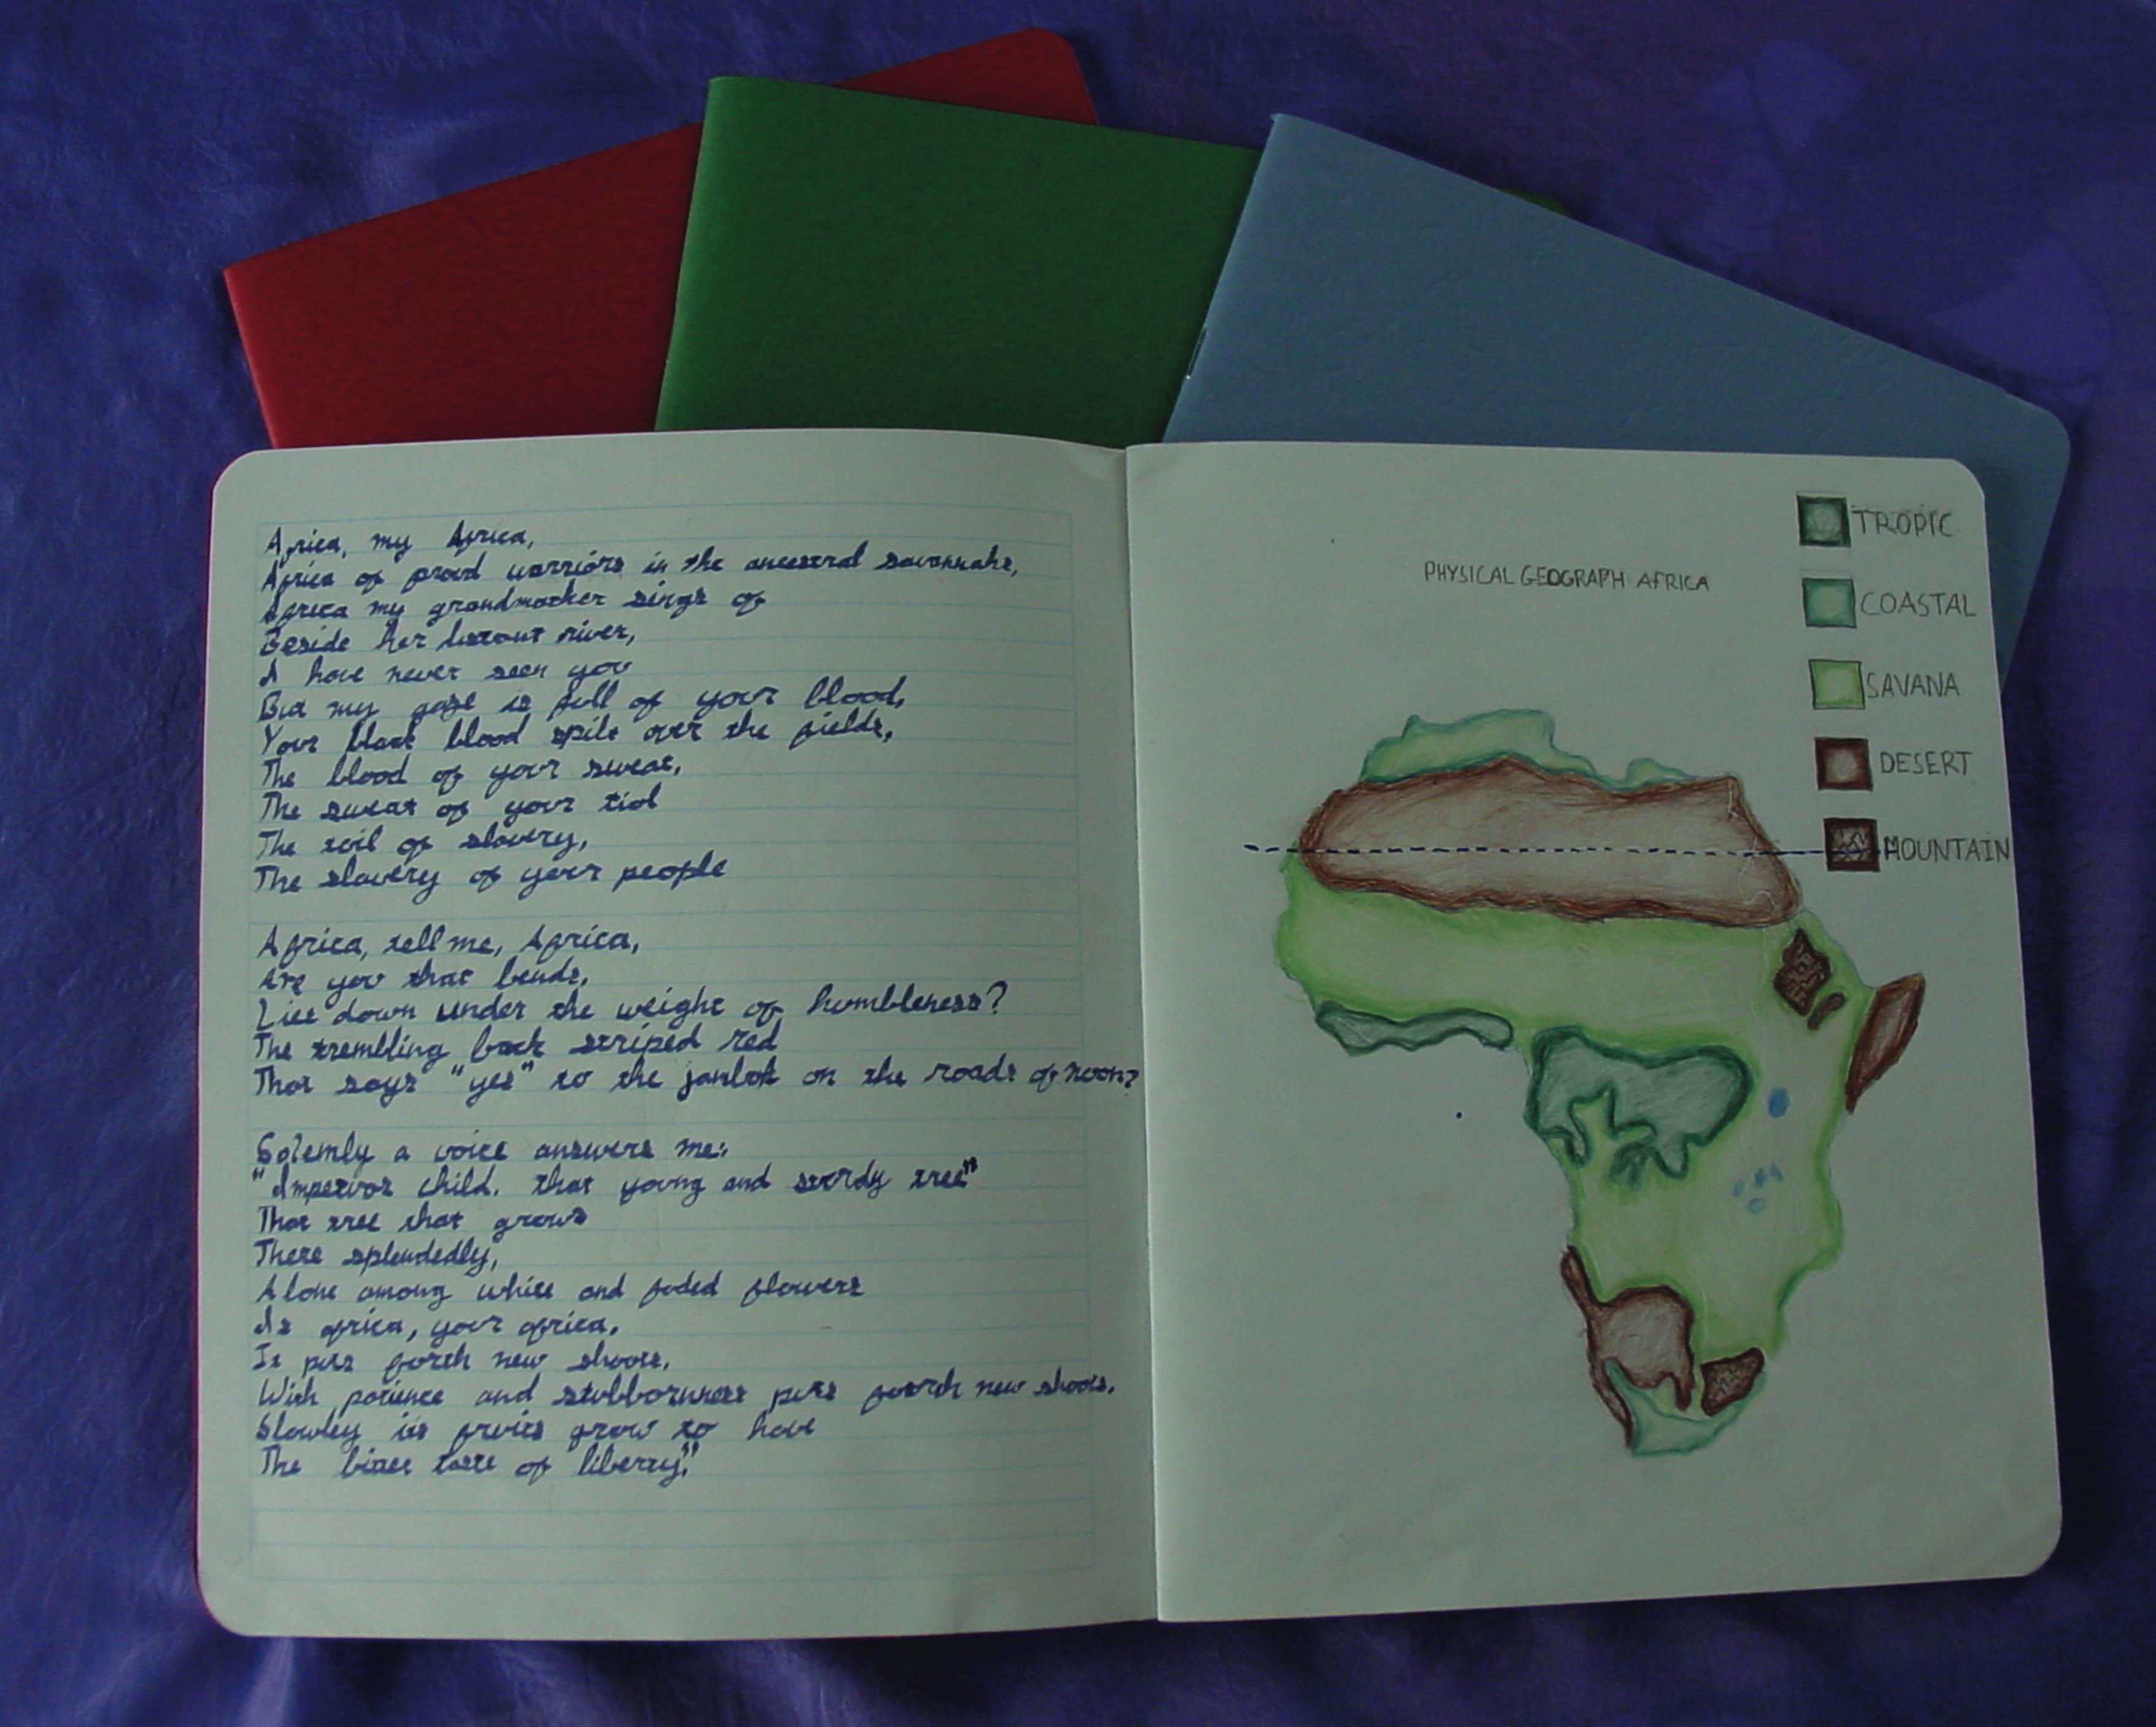 Africa, my Africa,
Africa of proud warriors in the ancestral savannahs,
Africa my grandmother sings of
Beside her distant river,
I have never seen you
But my gaze is full of your blood,
Your black blood spilt over the fields,
The blood of your sweat,
The sweat of your tiol
The toil of slavery,
The slavery of your people
Africa, tell me, Africa,
Are you that bends,
Lies down under the weight of humbleness?
The trembling back striped red
That says "yes" to the on the roads of noon?
Solemly a voice answers me:
child, that young and sturdy tree"
That tree that grows
There splendedly,
Alone among white and faded flowers
Is africa, your africa,
It puts forth new shoots,
With patience and stubbornness puts forth new shoots,
Slowley its fruits grow to have
The taste of liberty."
PHYSICAL GEOGRAPH AFRICA
TROPIC
COASTAL
SAVANA
DESERT
MOUNTAIN